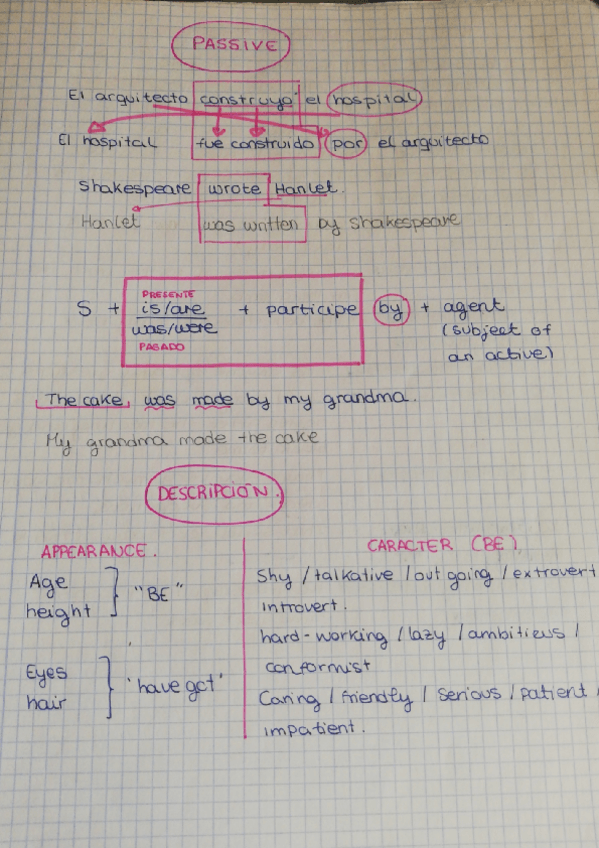 PASSIVE
El arquitecto construyo el hospital
El hospital fue construido por el arquitecto
Shakespeare wrote Hanlet.
Hanlet was written by Shakespeare
PRESENTE
S + is/are + participe by + agent
was/were (subject of
PASADO an active)
The cake, was made by my grandma.
My grandma made the cake
DESCRIPCIÓN.
APPEARANCE.
Age
height
"BE"
Eyes
hair
'have got'
CARACTER (BE)
Shy / talkative / out going / extrovert
introvert.
hard-working / lazy / ambitieus /
conformist
Caring / friendly / serious / patient /
impatient.